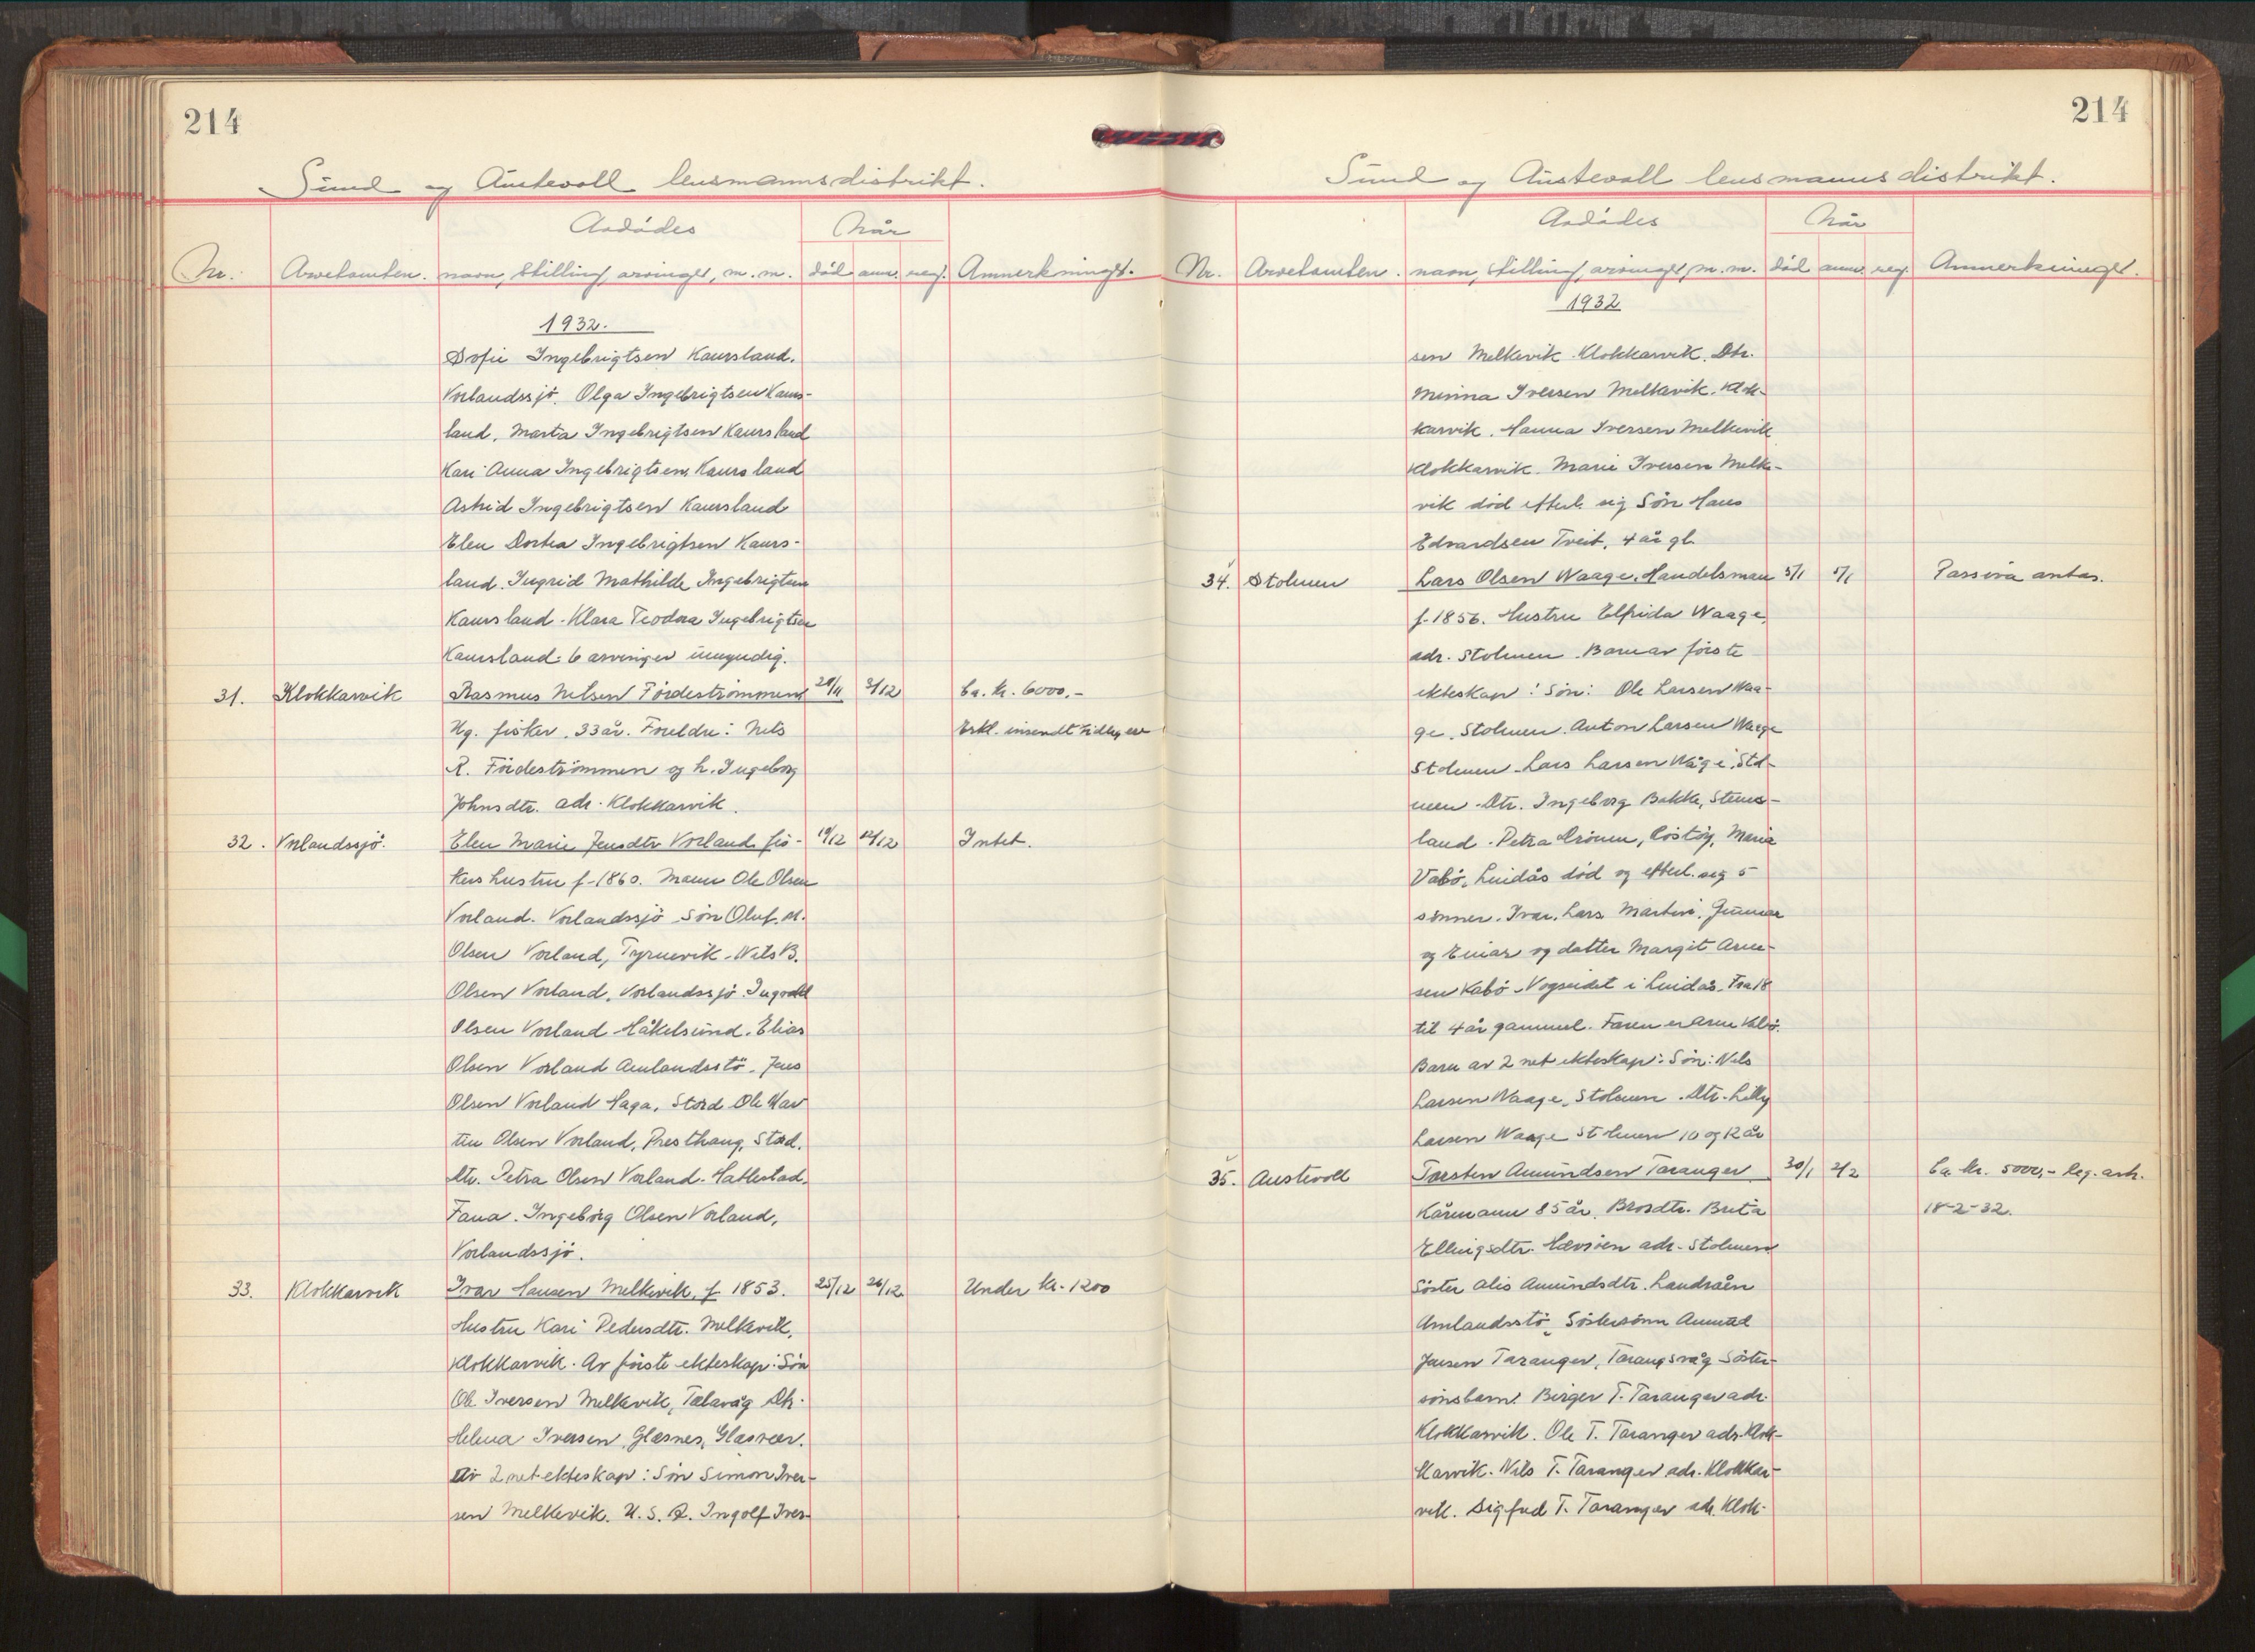 214
Sund og Austevoll lensmannsdistrikt.
Avdødes
Når
Nr. Arvetomten. navn, stilling, arvinger, m. m. død anm. reg. Anmerkninger.
1932.
Sofie Ingebrigtsen Kaursland.
Vorlandssjø. Olga Ingebrigtsen Kaurs-
land, Marta Ingebrigtsen Kaursland
Kari Anna Ingebrigtsen Kaursland
Astrid Ingebrigtsen Kaursland
Elen Dortea Ingebrigtsen Kaurs-
land. Ingrid Mathilde Ingebrigtsen
Kaursland. Klara Teodora Ingebrigtsen
Kaursland. 6 arvinger umyndig.
31. Klokkarvik Rasmus Nilsen Førdestrømmen 28/11 3/12 Ca. kr. 6000.-
Ug. fisker. 33 år. Foreldre: Nils Erkl. insendt tidligere
R. Førdestrømmen og h. Ingeborg
Johnsdtr. adr. Klokkarvik.
32. Vorlandssjø. Elen Marie Jensdtr Vorland fis- 10/12 12/12 Intet.
kers hustru f-1860. Mann Ole Olsen
Vorland. Vorlandssjø Søn Oluf. M.
Olsen Vorland, Tyrnevik. Nils B.
Olsen Vorland, Vorlandssjø. Ingvald
Olsen Vorland Håkelsund. Elias
Olsen Vorland Amlandsstø. Jens
Olsen Vorland Haga, Stord Ole Mar
tin Olsen Vorland, Presthaug, Stord.
Dtr. Petra Olsen Vorland. Hatlestad.
Fana. Ingeborg Olsen Vorland,
Vorlandssjø.
33. Klokkarvik Ivar Hansen Melkevik, f 1853. 25/12 26/12 Under kr. 1200
Hustru Kari Pedersdtr. Melkevik,
Klokkarvik. Av første ekteskap: Søn
Ole Iversen Melkevik, Telavåg Dtr.
Helena Iversen, Glesnes, Glesvær.
Av 2 net ekteskap: Søn Simon Iver-
sen Melkevik. U. S. A. Ingolf Iver-
214
Sund og Austevoll lensmannsdistrikt.
Avdødes
Når
Nr. Arvetomten. navn, stilling, arvinger, m. m. død anm. reg. Anmerkninger.
1932
sen Melkevik. Klokkarvik. Dtr.
Minna Iversen Melkevik. Klok-
karvik. Hanna Iversen Melkevik
Klokkarvik. Marie Iversen Melke-
vik død efterl. sig Søn Hans
Edvardsen Tveit, 4 år gl.
34. Stolmen Lars Olsen Waage, Handelsman 5/1 5/1 Passiva antas.
f-1856. Hustru Elfrida Waage,
adr. Stolmen. Barn av første
ekteskap: Søn: Ole Larsen Waa-
ge, Stolmen. Anton Larsen Waage
Stolmen Lars Larsen Våge, Stol-
men. Dtr. Ingeborg Bakke, Stens-
land. Petra Drönen, Rostøy, Maria
Vabø, Lindås død og efterl. seg 5
sønner. Ivar, Lars Martin, Gunnar
og Einar og datter Margit Arne-
sen Vabø Vogseidet i Lindås. Fra 18
til 4 år gammel. Faren er Arne Vabø.
Barn av 2 net ekteskap: Søn: Nils
Larsen Waage, Stolmen. Dtr. Lilly
Larsen Waage Stolmen 10 og 12 år
35. Austevoll Torsten Amundsen Taranger 30/1 2/2 Ca kr. 5000,- Reg. ark.
Kårmann 85 år. Brordtr. Brita 18-2-32.
Ellingsdtr. adr. Stolmen
Søster Alis Amundsdtr. Landraaen
Amlandsstø, Søstersønn Amund
Jensen Taranger, Tarangsvåg Søster-
sønsbarn. Birger T. Taranger adr.
Klokkarvik. Ole T. Taranger adr. Klok-
karvik. Nils T. Taranger adr. Klokkar-
vik. Sigfred T. Taranger adr. Klok-